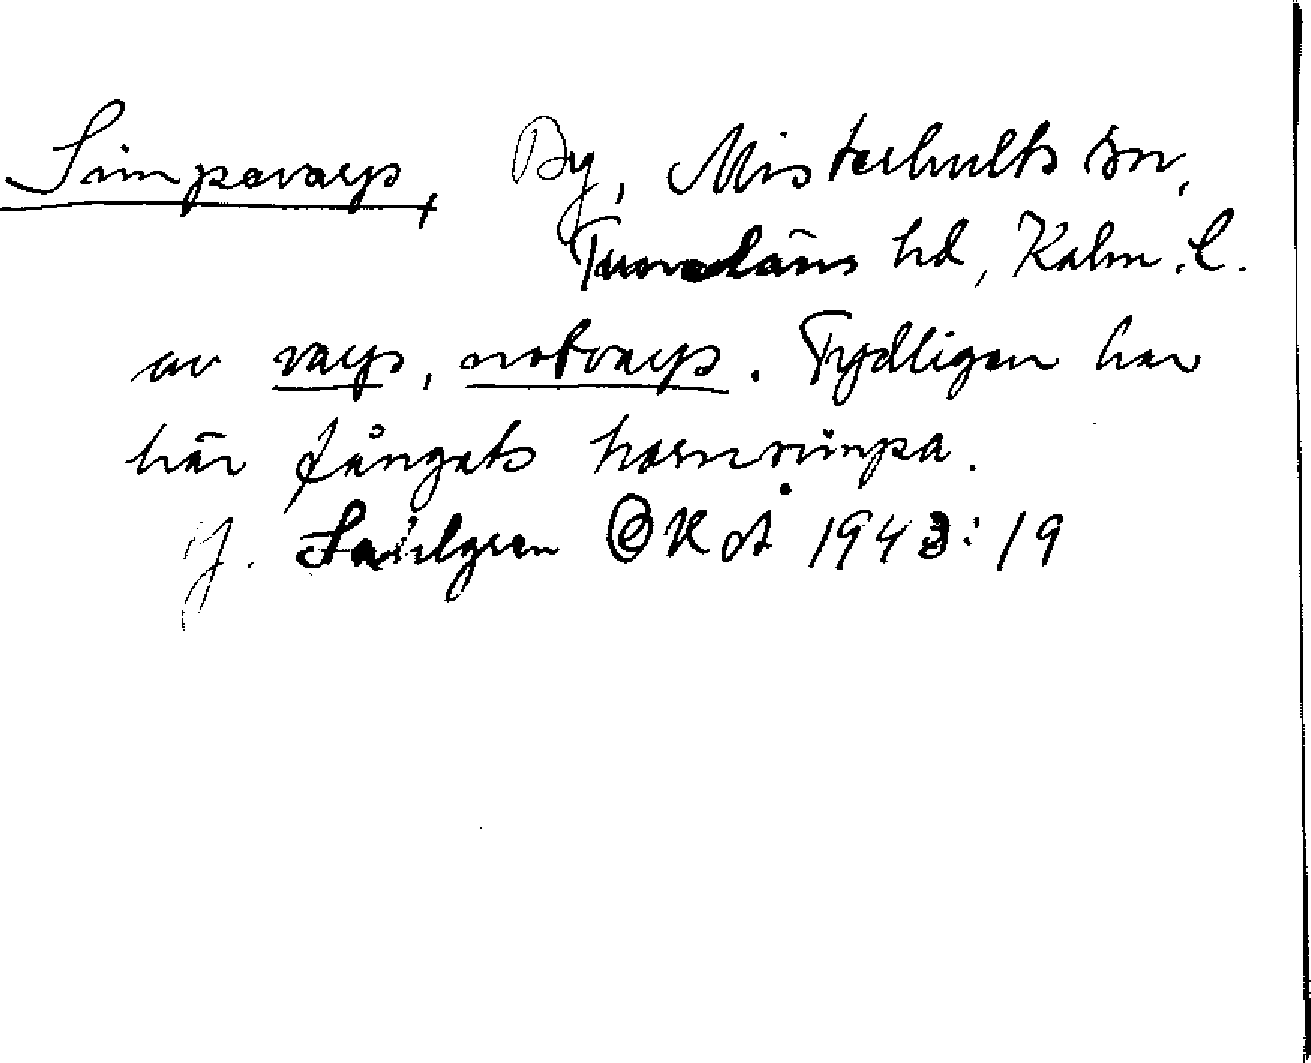 Simpevarp, By, Misterhults sn,
Tunaläns hd, Kalm. l.
av varp, notvarp. Tydligen har
här fångats hornsimpa.
J. Sahlgren OKOÅ 1943:19